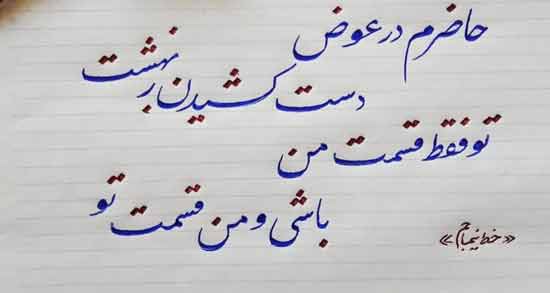 حاضرم در عوض
دست کشیدن ز بهشت
تو فقط قسمت من
باشی و من قسمت تو
«خط